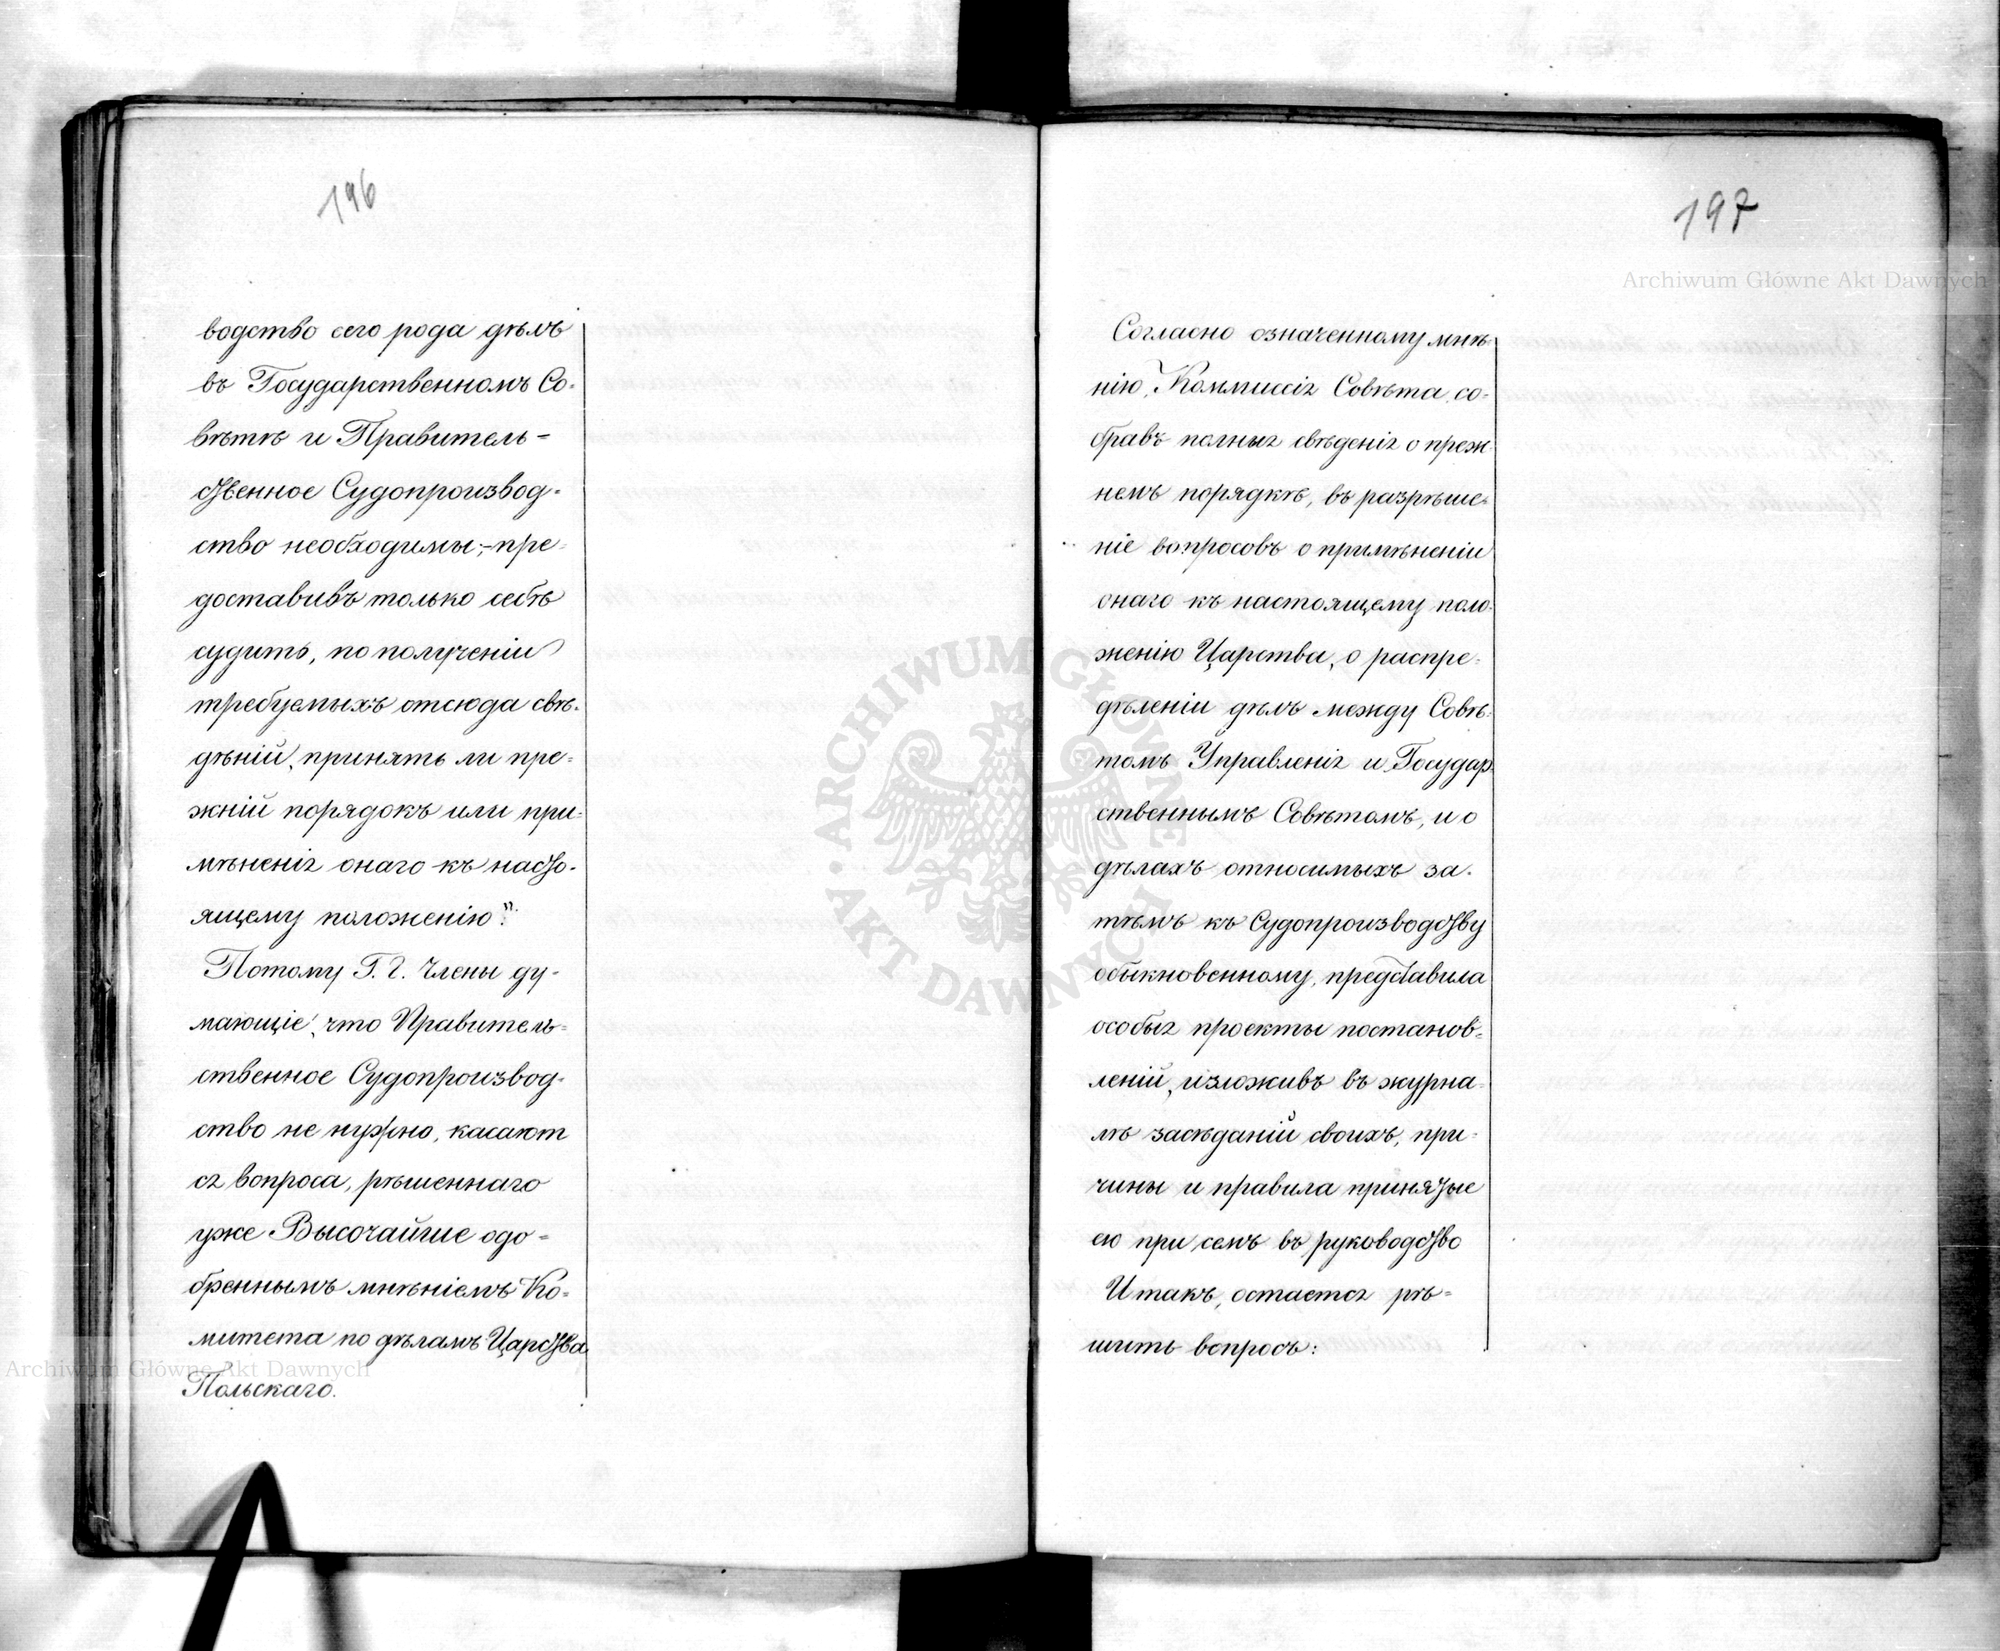 196
водство сего рода дѣлъ
въ Государственномъ Со-
вѣтѣ и Правитель-
ственное Судопроизвод-
ство необходимы;-пре-
доставивъ только себѣ
судить, по полученіи
требуемыхъ отсюда свѣ-
дѣній, принять ли пре-
жній порядокъ или при-
мѣненія онаго къ насто-
ящему положенію".
Потому Г. Г. Члены ду-
мающіе, что Правитель-
ственное Судопроизвод-
ство не нужно, касают
ся вопроса, рѣшеннаго
уже Высочайше одо-
бреннымъ мнѣніемъ Ко-
митета по дѣламъ Царства
Польскаго.
197
Согласно означенному мнѣ-
нію, Коммиссія Совѣта, со-
бравъ полныя свѣденія о преж-
немъ порядкѣ, въ разрѣше-
ніе вопросовъ о примѣненіи
онаго къ настоящему поло-
женію Царства, о распре-
дѣленіи дѣлъ между Совѣ-
томъ Управленія и Государ-
ственнымъ Совѣтомъ, и о
дѣлахъ относимыхъ за-
тѣмъ къ Судопроизводству
обыкновенному, представила
особыя проекты постанов-
леній, изложивъ въ журна-
лѣ засѣданій своихъ, при-
чины и правила принятые
ею при семъ въ руководство
Итакъ, остается рѣ-
шить вопросъ:
Archiwum Główne Akt Dawnych
ARCHIWUM GŁÓWNE · AKT DAWNYCH ·
Archiwum Główne Akt Dawnych